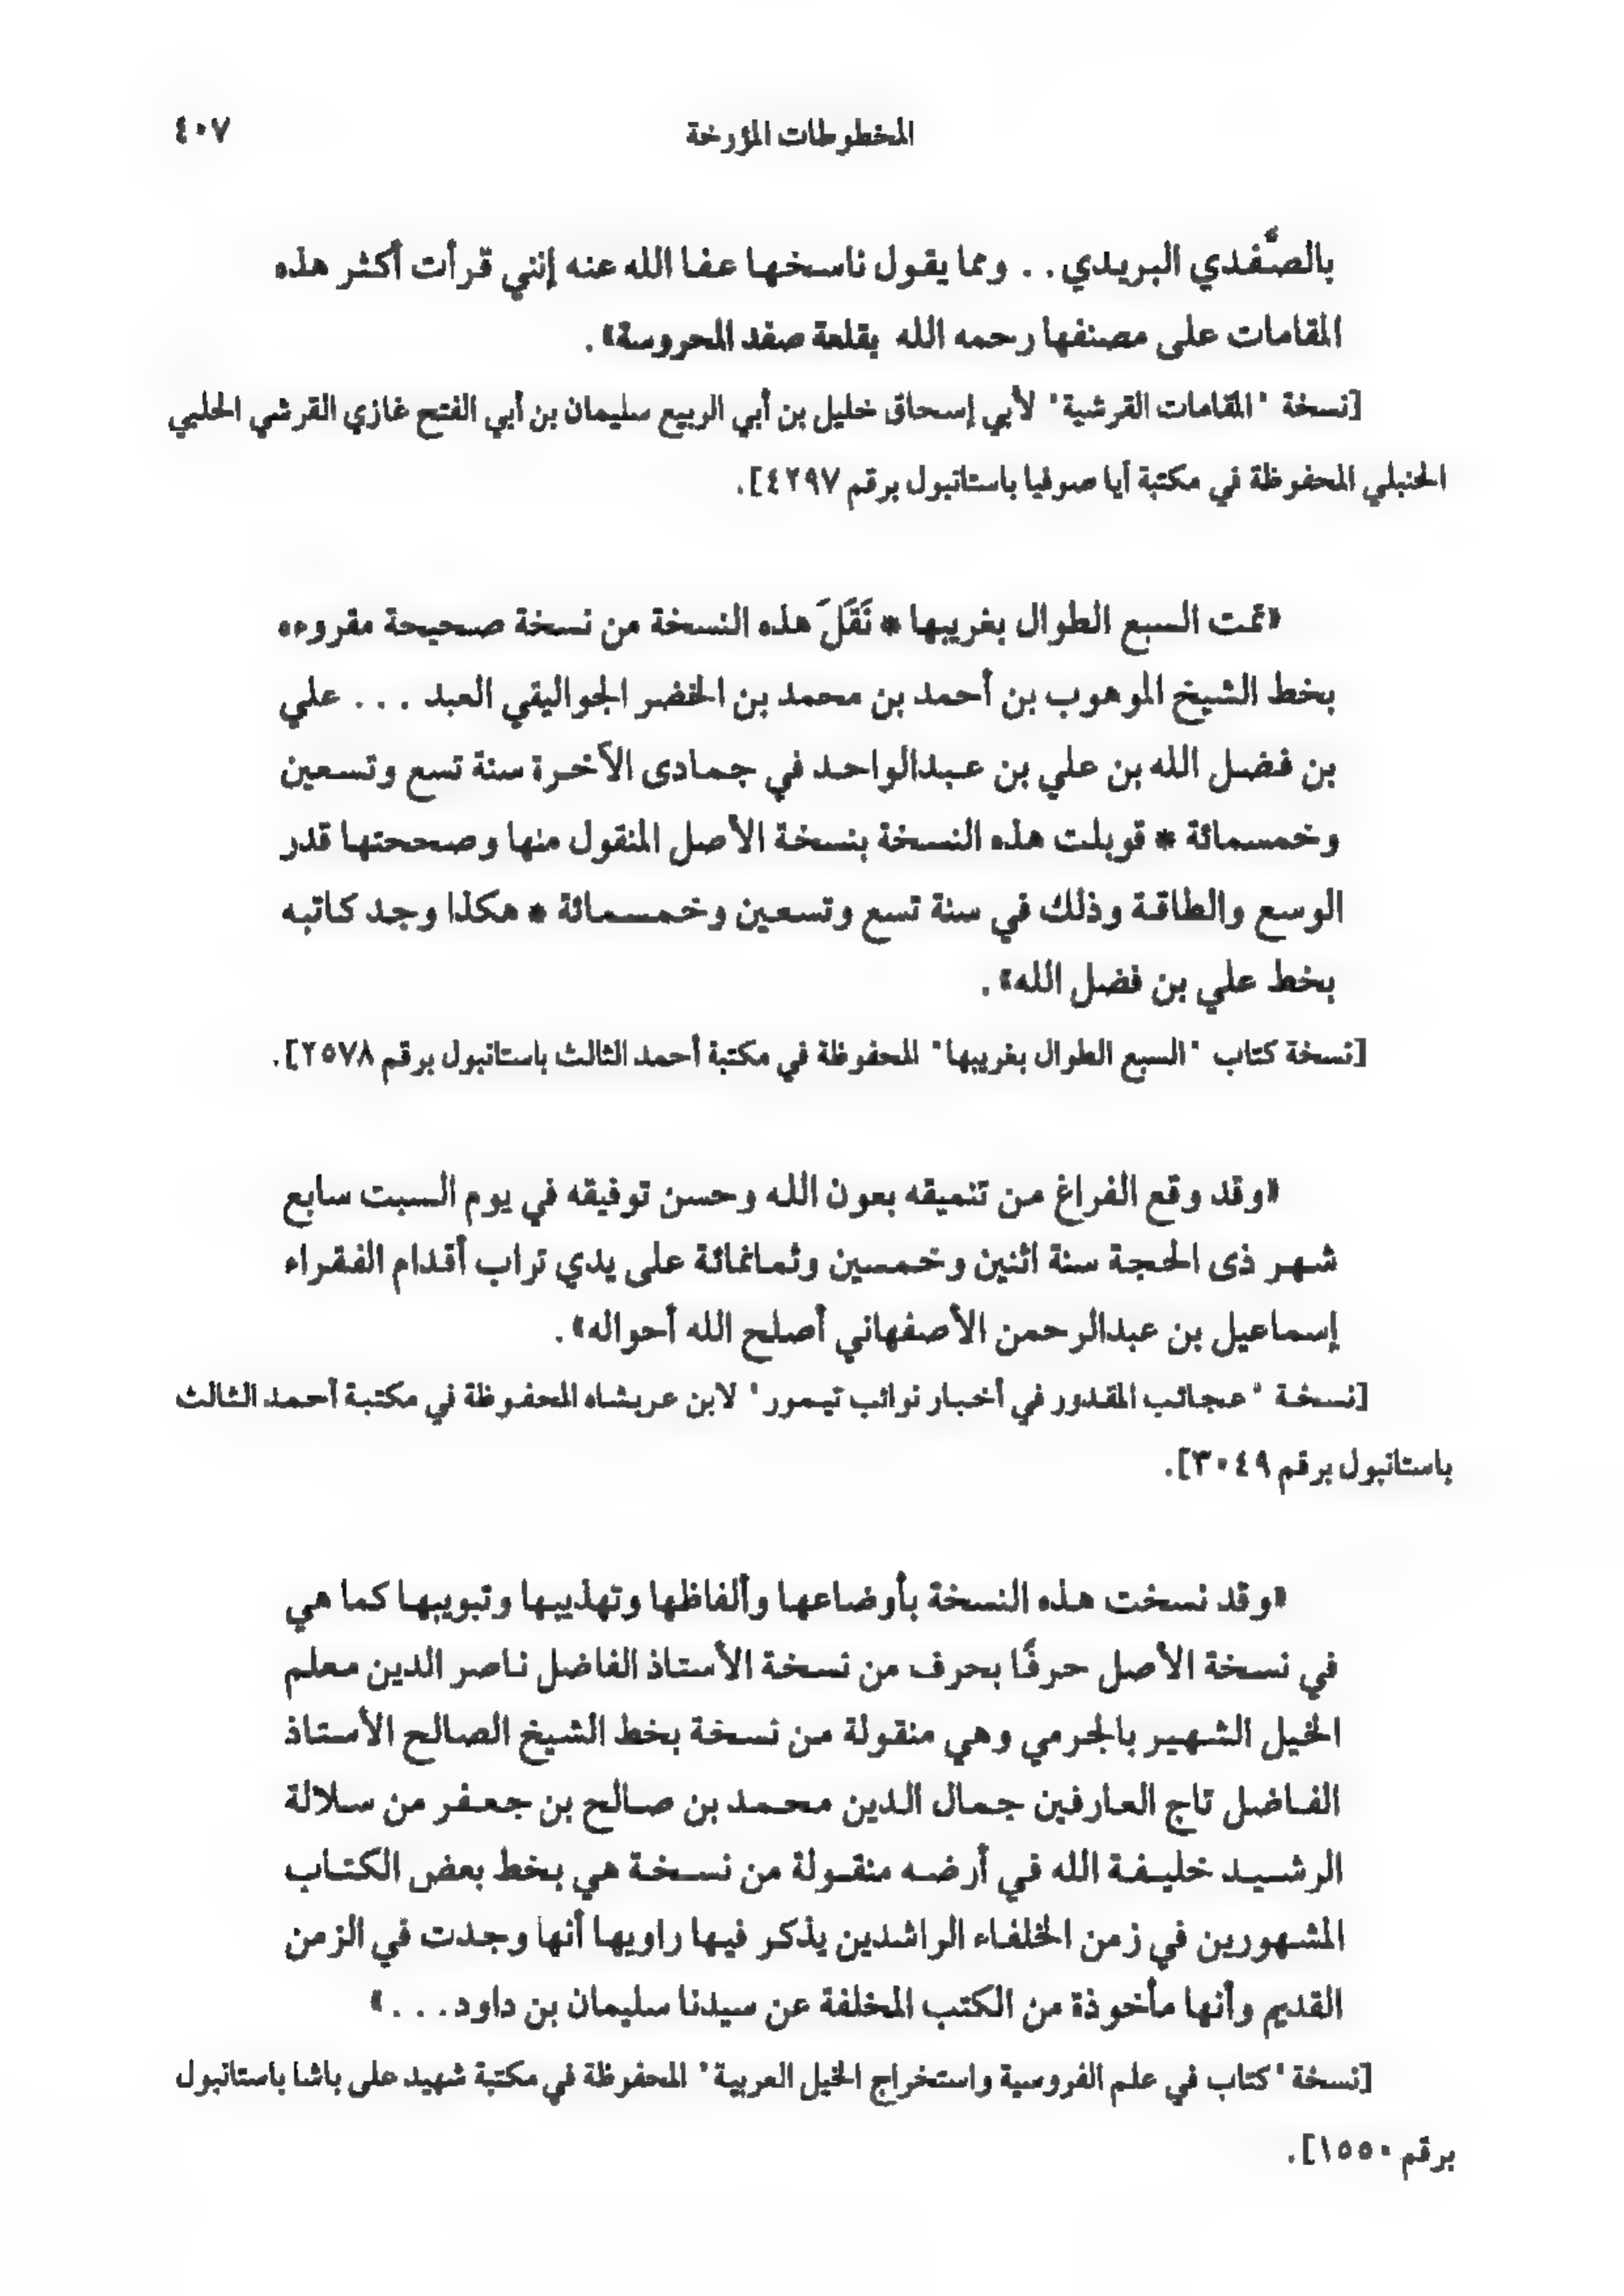 المخطوطات المؤرخة ٤٠٧
بالصَّفدي البريدي . . ومما يقول ناسخها عفا الله عنه إنني قرأت أكثر هذه
المقامات على مصنفها رحمه الله بقلعة صفد المحروسة» .
[نسخة "المقامات القرشية" لأبي إسحاق خليل بن أبي الربيع سليمان بن أبي الفتح غازي القرشي الحلبي
الحنبلي المحفوظة في مكتبة أيا صوفيا باستانبول برقم ٤٢٩٧].
«تمت السبع الطوال بغريبها * نَقَلَ هذه النسخة من نسخة صحيحة مقروءه
بخط الشيخ الموهوب بن أحمد بن محمد بن الخضر الجواليقي العبد . . . علي
بن فضل الله بن علي بن عبدالواحد في جمادى الآخرة سنة تسع وتسعين
وخمسمائة * قوبلت هذه النسخة بنسخة الأصل المنقول منها وصححتها قدر
الوسع والطاقة وذلك في سنة تسع وتسعين وخمسمائة * هكذا وجد كاتبه
بخط علي بن فضل الله» .
[نسخة كتاب "السبع الطوال بغريبها" المحفوظة في مكتبة أحمد الثالث باستانبول برقم ٢٥٧٨].
«وقد وقع الفراغ من تنميقه بعون الله وحسن توفيقه في يوم السبت سابع
شهر ذى الحجة سنة اثنين وخمسين وثمانمائة على يدي تراب أقدام الفقراء
إسماعيل بن عبدالرحمن الأصفهاني أصلح الله أحواله» .
[نسخة "عجائب المقدور في أخبار نوائب تيمور" لابن عربشاه المحفوظة في مكتبة أحمد الثالث
باستانبول برقم ٣٠٤٩].
«وقد نسخت هذه النسخة بأوضاعها وألفاظها وتهذيبها وتبويبها كما هي
في نسخة الأصل حرفًا بحرف من نسخة الأستاذ الفاضل ناصر الدين معلم
الخيل الشهير بالجرمي وهي منقولة من نسخة بخط الشيخ الصالح الأستاذ
الفاضل تاج العارفين جمال الدين محمد بن صالح بن جعفر من سلالة
الرشيد خليفة الله في أرضه منقولة من نسخة هي بخط بعض الكتاب
المشهورين في زمن الخلفاء الراشدين يذكر فيها راويها أنها وجدت في الزمن
القديم وأنها مأخوذة من الكتب المخلفة عن سيدنا سليمان بن داود . . . »
[نسخة "كتاب في علم الفروسية واستخراج الخيل العربية" المحفوظة في مكتبة شهيد على باشا باستانبول
برقم ١٥٥٠].